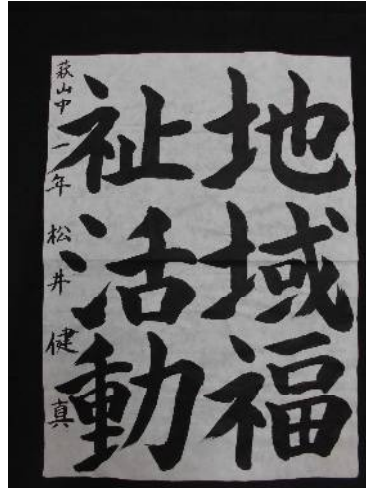 地域福
祉活動
萩山中一年 松井健真